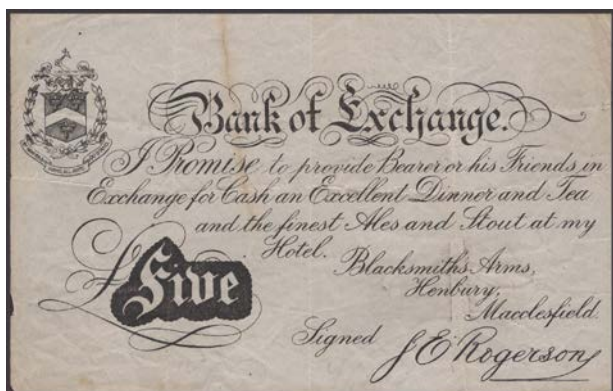 Bank of Exchange.
I Promise to provide Bearer or his Friends in
Exchange for Cash an Excellent Dinner and Tea
and the finest Ales and Stout at my
Hotel.
Blacksmith's Arms,
Henbury,
Macclesfield.
£Five
Signed
J E Rogerson